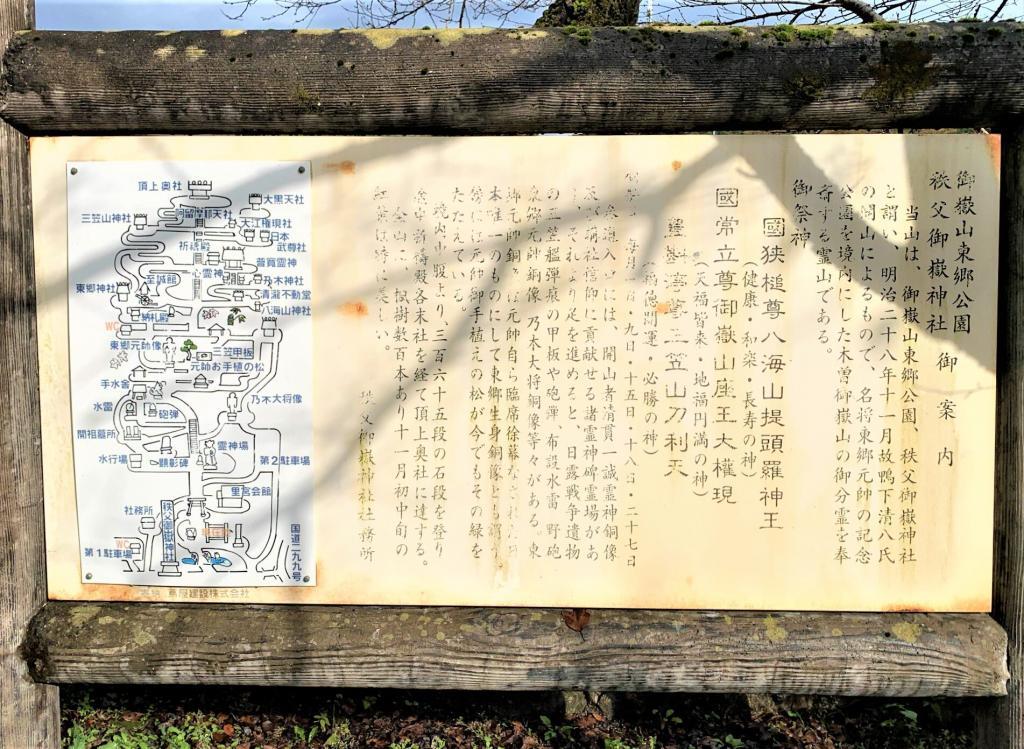 御嶽山東郷公園
秩父御嶽神社 御案内
当山は、御嶽山東郷公園、秩父御嶽神社
と謂い、明治二十八年十一月故鴨下清八氏
の開山によるもので、名将東郷元帥の記念
公園を境内にした木曽御嶽山の御分霊を奉
斎する霊山である。
御祭神
國狭槌尊八海山提頭羅神王
(健康・和楽・長寿の神)
國常立尊御嶽山座王大權現
(天福皆来・地福円満の神)
三笠山刀利天
開運・必勝の神)
九日・十五日・十八日・二十七日
には、開山者清貫一誠霊神銅像
信仰に貢献せる諸霊神碑霊場があ
それより足を進めると、日露戦争遺物
の三笠艦弾痕の甲板や砲弾、布設水雷、野砲
東郷元帥銅像、乃木大将銅像等々がある。東
郷元帥銅像は元帥自ら臨席除幕
本唯一のものにして東郷生身銅像とも謂う
傍には元帥御手植えの松が今でもその緑を
たたえている。
境内山般より、三百六十五段の石段を登り
祈祷殿各末社を経て頂上奥社に達する。
全山に、楓樹数百本あり十一月初中旬の
紅葉は特に美しい。
秩父御嶽神社社務所
頂上奥社
大黒天社
阿留摩耶天社
三笠山神社
大江権現社
日本
武尊社
祈祷殿
普寛霊神
心霊神
至誠館
乃木神社
東郷神社
清瀧不動堂
八海山神社
納札殿
WC
東郷元帥像
三笠甲板
元帥お手植の松
手水舎
乃木大将像
水雷
砲弾
開祖墓所
霊神場
水行場
顕彰碑
第2駐車場
里宮会館
社務所
秩父御嶽神社
WC
第1駐車場
国道二九九号
蔦屋建設株式会社